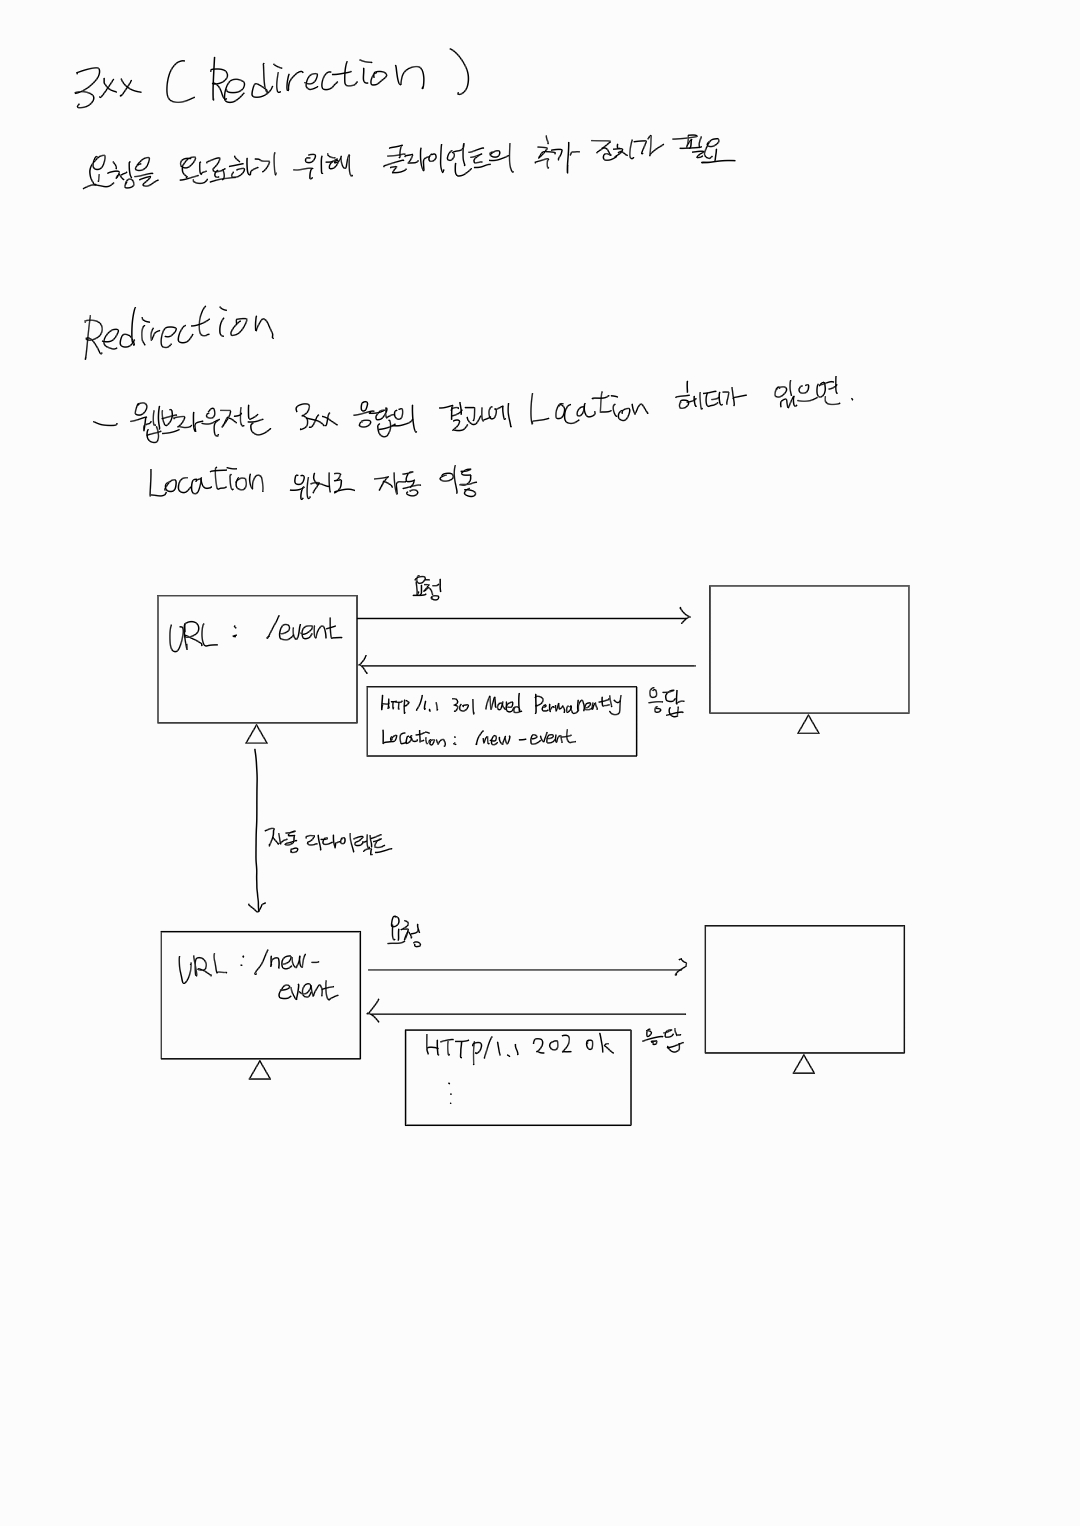 3xx ( Redirection )
요청을 완료하기 위해 클라이언트의 추가 조치가 필요
Redirection
- 웹브라우저는 3xx 응답의 결과에 Location 헤더가 있으면.
Location 위치로 자동 이동
요청
URL : /event
Http/1.1 301 Moved Permanently
응답
Location : /new-event
자동 리다이렉트
요청
URL : /new-
event
응답
HTTP/1.1 202 ok
⋮